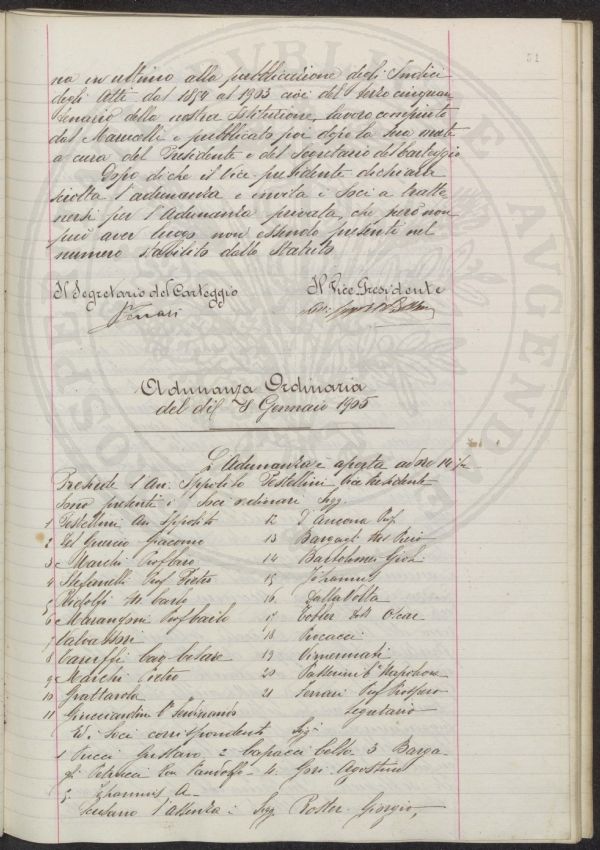 51
na in ultimo alla pubblicazione degli Indici
degli Atti dal 1854 al 1903 cioè del terzo cinquan
tenario della nostra Istituzione, lavoro compiuto
dal Marucelli e pubblicato poi dopo la sua morte
a cura del Presidente e del Segretario del Carteggio
Dopo di che il Vice-presidente dichiara
sciolta l'adunanza e invita i Soci a tratte
nersi per l'Adunanza privata, che però non
può aver luogo non essendo presenti nel
numero stabilito dallo Statuto
Il Segretario del Carteggio Il Vice Presidente
Ferrari
Adunanza Ordinaria
del dì 8 Gennaio 1905
L'Adunanza è aperta ad ore
Presiede l'Avv. Ippolito Pestellini Vice Presidente
Sono presenti i Soci ordinari Sigg.
1 Pestellini Avv. Ippolito
2 Del Guercio Giacomo
3 Marchi Prof
4 Stefanelli Prof Pietro
5 Ridolfi M. Carlo
6 Marangoni Prof Carlo
7 Valvassori
8 Caruffi Cav.
9 Marchi Pietro
10 Grattarola
11 Guicciardini Cte Ferdinando
12 D'Ancona Prof.
13 Bargagli Mse Piero
14
15 Johannis
16 Dalla Volta
17 Tobler Dott Oscar
18 Pucacci
19 Vimercati
20 Passerini Cte Napoleone
21 Ferrari Prof Prospero
Segretario
Ed i Soci corrispondenti Sigi
1 Pucci Gustavo 2 Capacci Celso 3 Barga
gli Petrucci Pandolfo 4. Gori Agostino
5. Johannis A.
Scusano l'assenza i Sigg. Roster Giorgio,